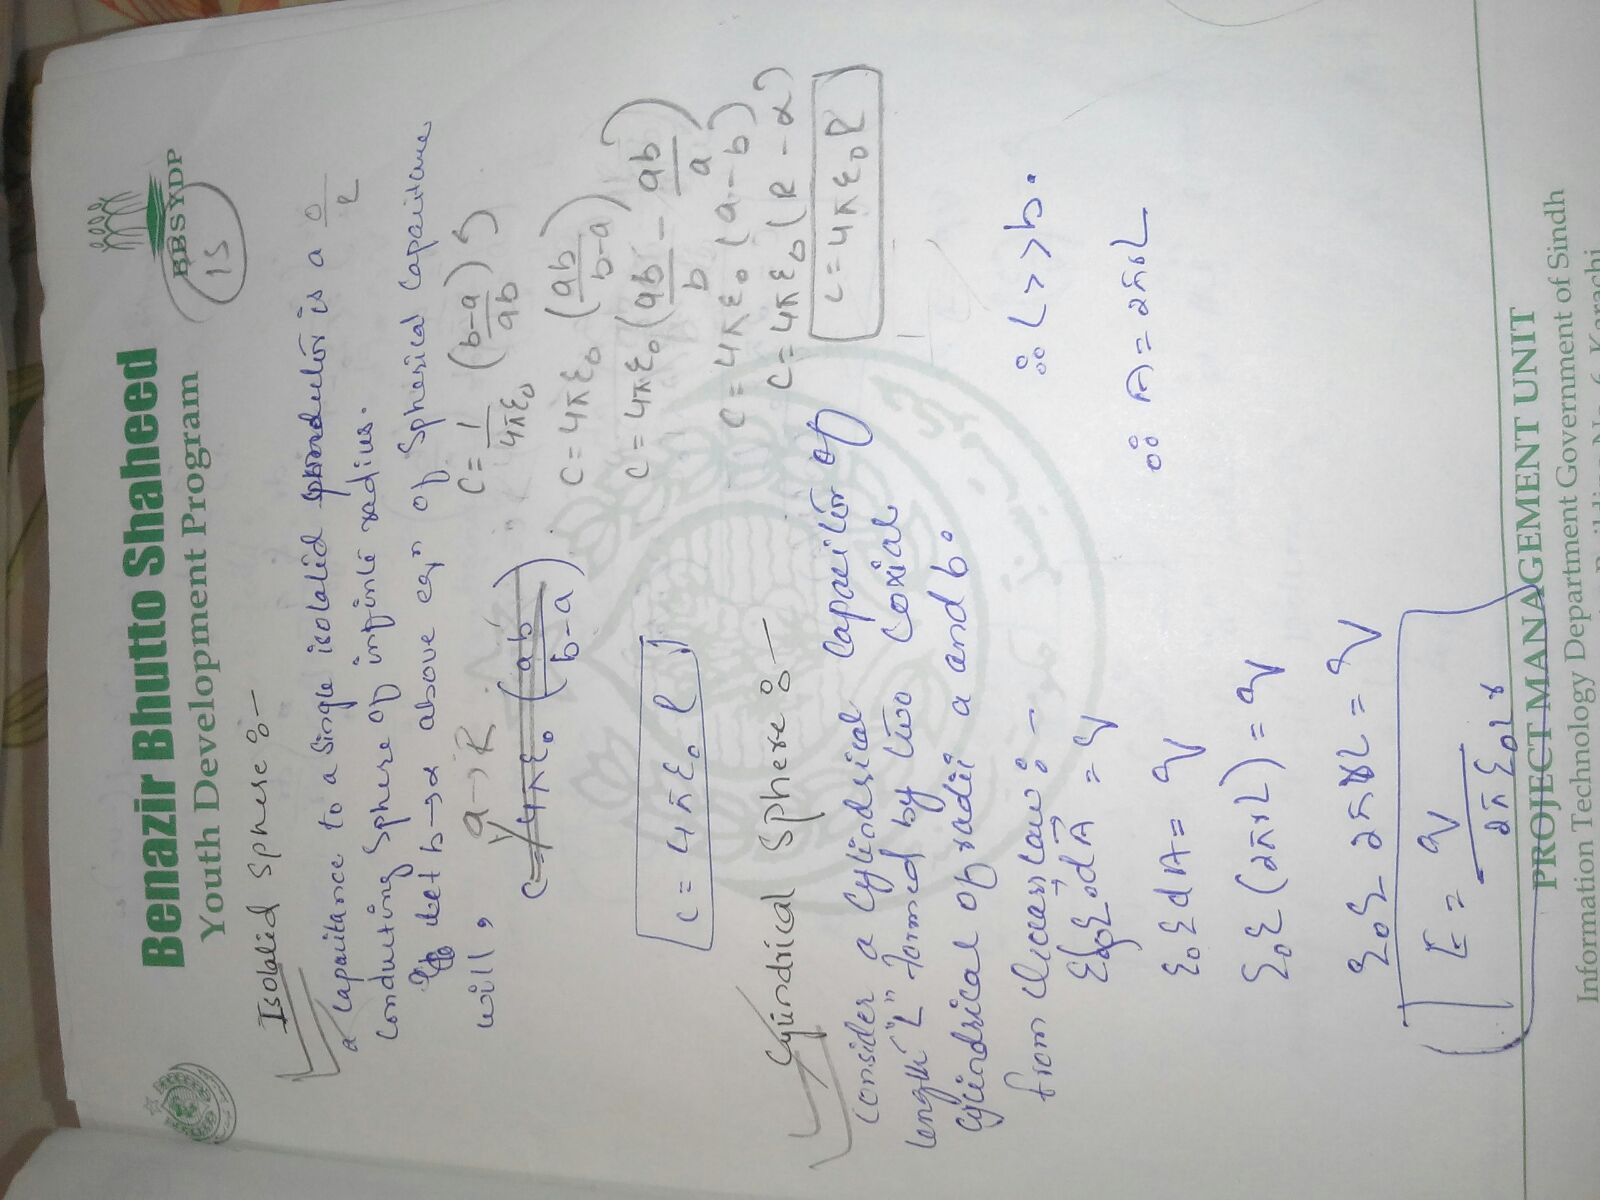 Benazir Bhutto Shaheed
Youth Development Program
BBSYDP
15
Isolatid Sphere :-
a Capacitance to a single isolatid conductor is a
conducting sphere of infinite radius.
let b→α above eqn of spherical capacitance
will, a→R
C = 4πε₀ (ab/b-a)
C = 4πε₀R
C = 1/4πε₀ (b-a/ab)
C = 4πε₀ (ab/b-a)
C = 4πε₀ (ab/b - ab/a)
C = 4πε₀ (a-b)
C = 4πε₀ (R-α)
C = 4πε₀R
Cylindrical Sphere :-
Consider a Cylindrical Capacitor of
length "L" formed by two Coxial
Cylindrical of radii a and b. ∴ L>>b.
from law :-
= q
ε₀EdA = q ∴ A = 2πrL
ε₀E(2πrL) = q
ε₀E 2πrL = q
E = q/2πε₀Lr
PROJECT MANAGEMENT UNIT
Information Technology Department Government of Sindh
Building No. 6, Karachi